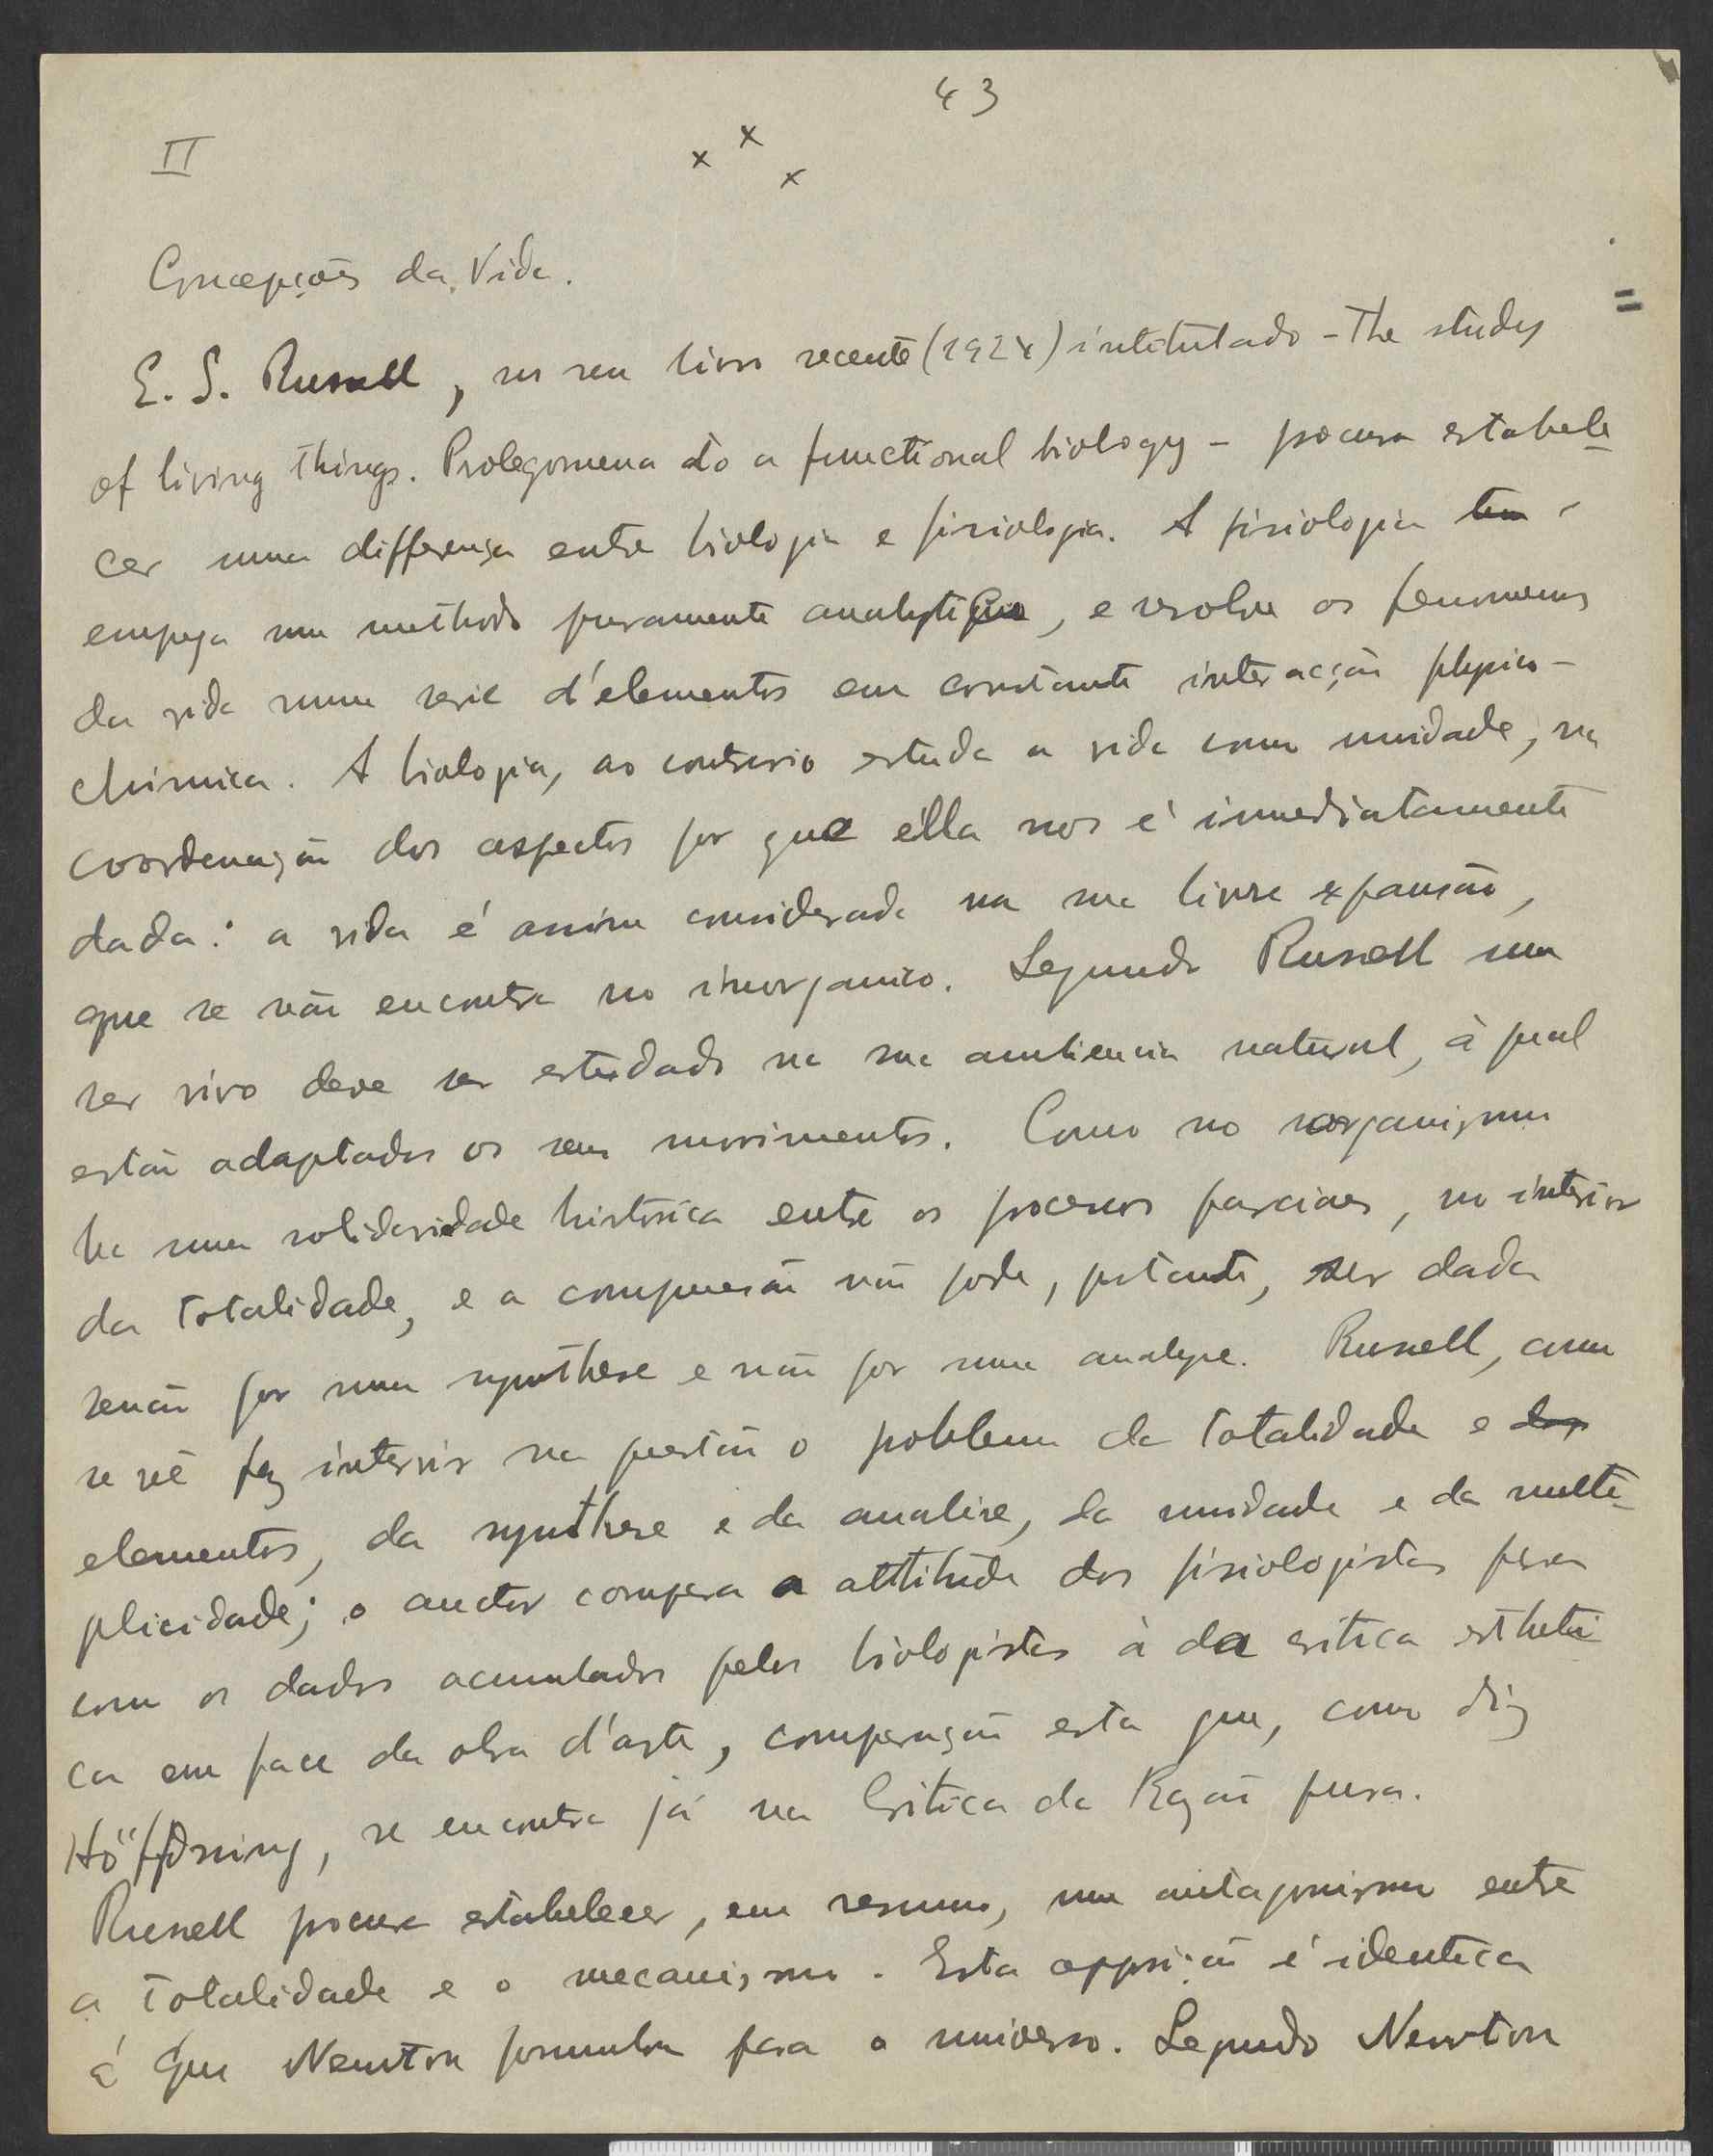 43
II
x x x
Concepções da Vida.
E. S. Russell, no seu livro recente (1924) intitulado - The study
of living things. Prolegomena to a functional biology - procura estabele
cer uma differença entre biologia e fisiologia. A fisiologia tem
emprega um methodo puramente analytico, e resolve os fenomenos
da vida numa serie d'elementos em constante interacção physico-
chimica. A biologia, ao contrario estuda a vida como unidade, na
coordenação dos aspectos por que ella nos é immediatamente
dada: a vida é assim considerada na sua livre expansão,
que se não encontra no inorganico. Segundo Russell um
ser vivo deve ser estudado na sua ambiencia natural, à qual
estão adaptados os seus movimentos. Como no organismo
ha uma solidariedade historica entre os processos parciaes, no interior
da totalidade, e a compreensão não pode, portanto, ser dada
senão por uma synthese e não por uma analyse. Russell, como
se vê faz intervir na questão o problema da totalidade e dos
elementos, da synthese e da analise, da unidade e da multi-
plicidade; o auctor compara a attitude dos fisiologistas para
com os dados acumulados pelos biologistas à da critica estheti
ca em face da obra d'arte, comparação esta que, como diz
Höffdning, se encontra já na Critica da Razão pura.
Russell procura estabelecer, em resumo, um antagonismo entre
a totalidade e o mecanismo. Esta opposição é identica
á que Newton formulou para o universo. Segundo Newton